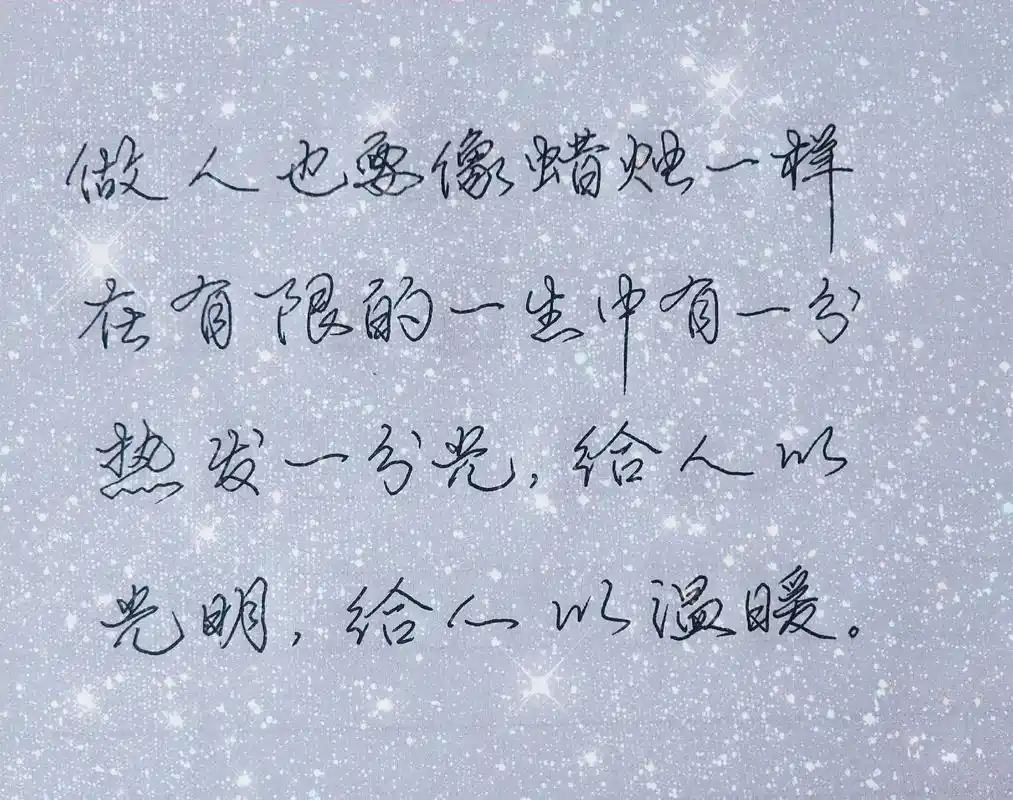 做人也要像蜡烛一样
在有限的一生中有一分
热发一分光，给人以
光明，给人以温暖。